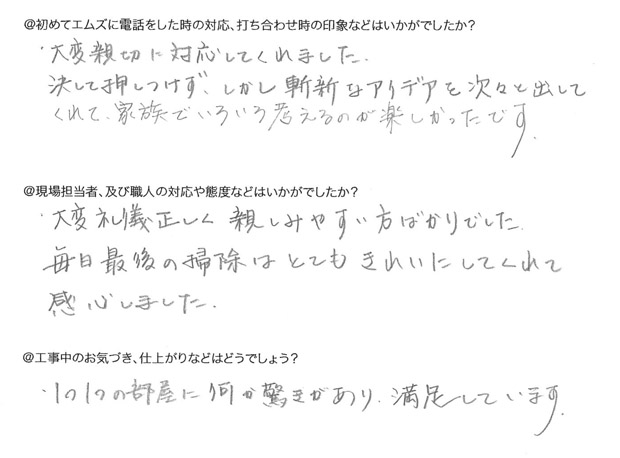 @初めてエムズに電話をした時の対応、打ち合わせ時の印象などはいかがでしたか?
・大変親切に対応してくれました.
決して押しつけず、しかし斬新なアイデアを次々と出して
くれて、家族でいろいろ考えるのが楽しかったです.
@現場担当者、及び職人の対応や態度などはいかがでしたか?
・大変礼儀正しく親しみやすい方ばかりでした.
毎日最後の掃除はとてもきれいにしてくれて
感心しました.
@工事中のお気づき、仕上がりなどはどうでしょう?
・1つ1つの部屋に何か驚きがあり、満足しています.